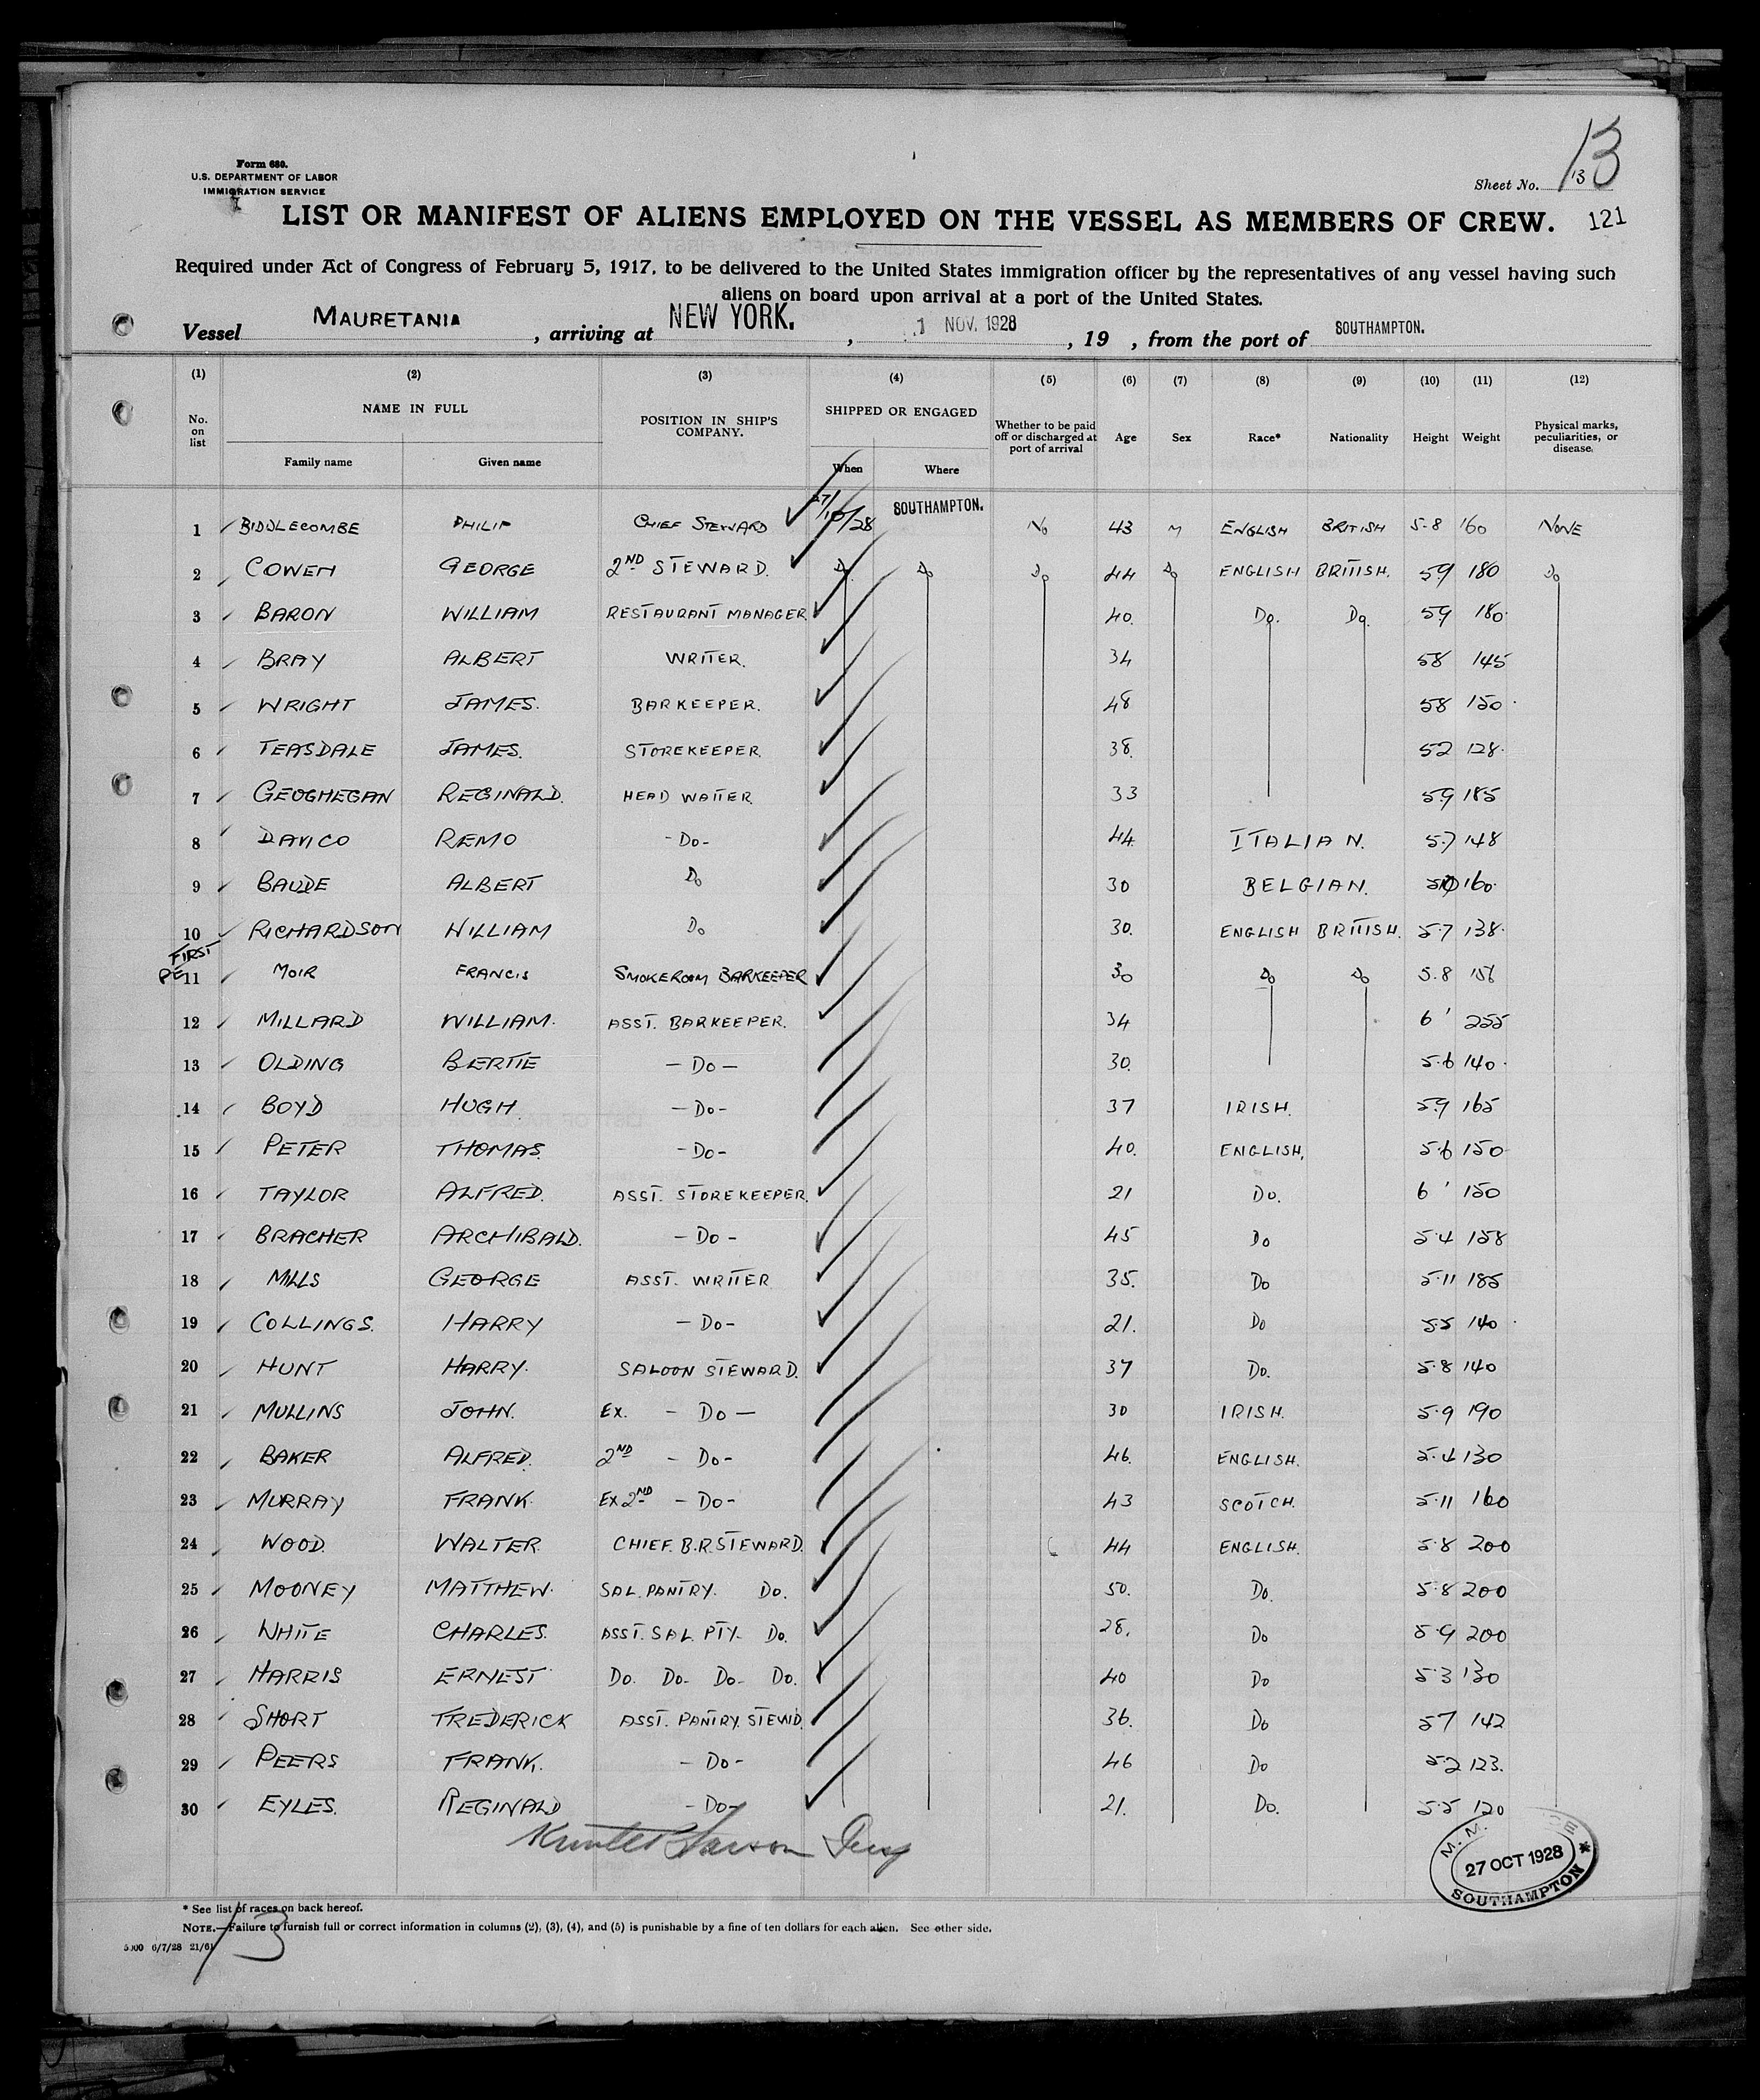 Form 680.
U.S. DEPARTMENT OF LABOR
IMMIGRATION SERVICE
Sheet No. 13 13
LIST OR MANIFEST OF ALIENS EMPLOYED ON THE VESSEL AS MEMBERS OF CREW. 121
Required under Act of Congress of February 5, 1917, to be delivered to the United States immigration officer by the representatives of any vessel having such
aliens on board upon arrival at a port of the United States.
Vessel MAURETANIA, arriving at NEW YORK., 1 NOV. 1928, 19 , from the port of SOUTHAMPTON.
(1) (2) (3) (4) (5) (6) (7) (8) (9) (10) (11) (12)
No. on list NAME IN FULL Family name Given name POSITION IN SHIP'S COMPANY. SHIPPED OR ENGAGED When Where Whether to be paid off or discharged at port of arrival Age Sex Race* Nationality Height Weight Physical marks, peculiarities, or disease.
1 BIDDLECOMBE PHILIP CHIEF STEWARD 27/10/28 SOUTHAMPTON. No 43 M ENGLISH BRITISH 5-8 160 NONE
2 COWEN GEORGE 2ND STEWARD. Do Do Do 44 Do ENGLISH BRITISH. 59 180 Do
3 BARON WILLIAM RESTAURANT MANAGER 40. Do. Do. 59 180.
4 BRAY ALBERT WRITER. 34 58 145
5 WRIGHT JAMES. BARKEEPER. 48 58 150.
6 TEASDALE JAMES. STOREKEEPER. 38. 52 128.
7 GEOGHEGAN REGINALD. HEAD WAITER. 33 59 185
8 DAVICO REMO -Do- 44. ITALIAN. 5.7 148
9 BAUDE ALBERT Do 30 BELGIAN. 160.
10 RICHARDSON WILLIAM Do 30. ENGLISH BRITISH. 5.7 138.
FIRST
11 MOIR FRANCIS SMOKEROOM BARKEEPER 30 Do Do 5.8 156
12 MILLARD WILLIAM. ASST. BARKEEPER. 34 6' 255
13 OLDING BERTIE - Do - 30. 5.6 140.
14 BOYD HUGH. - Do - 37 IRISH. 5.9 165
15 PETER THOMAS. - Do - 40. ENGLISH. 5.6 150
16 TAYLOR ALFRED. ASST. STOREKEEPER. 21 Do. 6' 150
17 BRACHER ARCHIBALD. - Do - 45 Do 5.4 158
18 MILLS GEORGE ASST. WRITER 35. Do 5.11 185
19 COLLINGS. HARRY - Do - 21. Do 5.5 140
20 HUNT HARRY. SALOON STEWARD. 37 Do. 5.8 140
21 MULLINS JOHN. EX. - Do - 30 IRISH. 5.9 190
22 BAKER ALFRED. 2ND - Do - 46. ENGLISH. 5.4 130
23 MURRAY FRANK. EX 2ND - Do - 43 SCOTCH. 5.11 160
24 WOOD. WALTER. CHIEF. B.R. STEWARD. 44 ENGLISH. 5.8 200
25 MOONEY MATTHEW. SAL. PANTRY. Do. 50. Do. 5.8 200
26 WHITE CHARLES. ASST. SAL. PTY. Do. 28. Do 5.9 200
27 HARRIS ERNEST Do. Do. Do. Do. 40 Do 5.3 130
28 SHORT FREDERICK ASST. PANTRY. STEWD. 36. Do 57 142
29 PEERS FRANK. - Do - 46 Do 5.2 123.
30 EYLES. REGINALD - Do - 21. Do. 5.5 120
M. M. 27 OCT 1928 SOUTHAMPTON *
* See list of races on back hereof.
NOTE.—Failure to furnish full or correct information in columns (2), (3), (4), and (5) is punishable by a fine of ten dollars for each alien. See other side.
5000 6/7/28
13